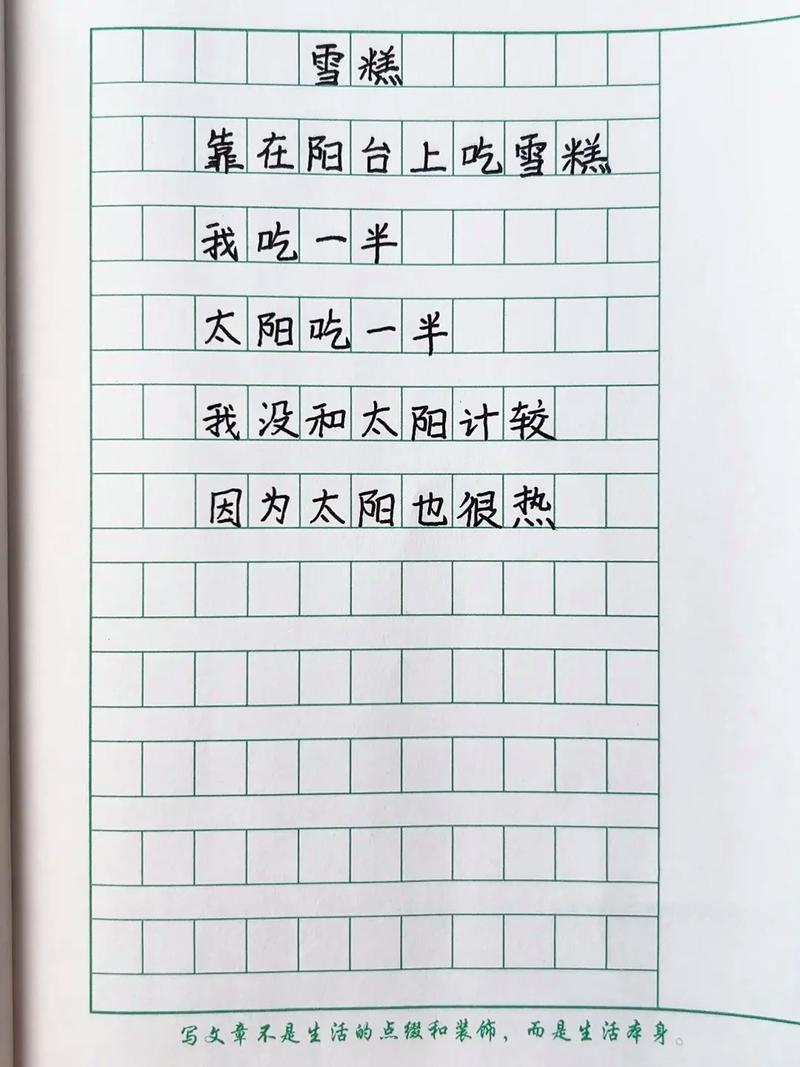 雪糕
靠在阳台上吃雪糕
我吃一半
太阳吃一半
我没和太阳计较
因为太阳也很热
写文章不是生活的点缀和装饰，而是生活本身。